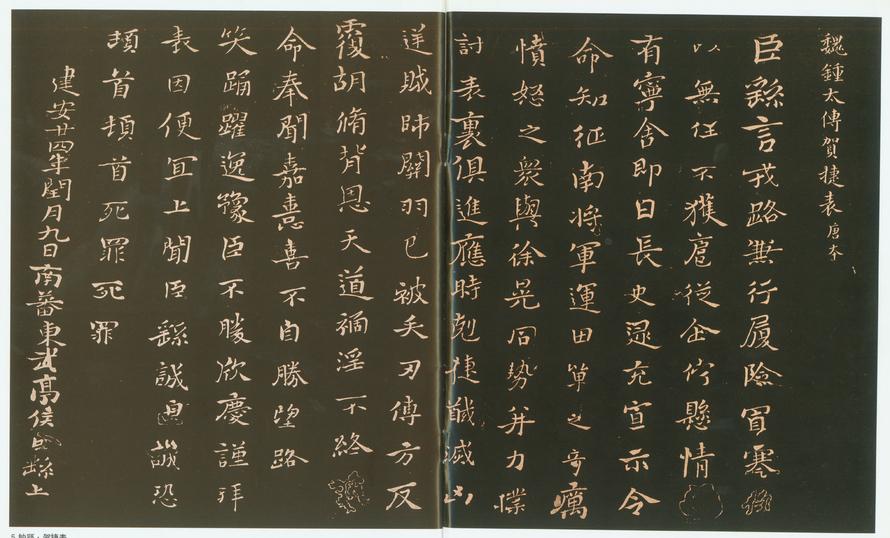 魏鍾太傅賀捷表唐本
臣繇言戎路兼行履險冒寒
以無任不獲扈從企佇懸情
有寧舍即日長史逯充宣示令
命知征南將軍運田單之奇厲
憤怒之衆與徐晃同勢并力撲
討表裏俱進應時剋捷馘滅凶
逆賊帥關羽已被矢刃傅方反
覆胡脩背恩天道禍淫不終
命奉聞嘉憙喜不自勝望路
笑踊躍逸豫臣不勝欣慶謹拜
表因便宜上聞臣繇誠皇誠恐
頓首頓首死罪死罪
建安廿四年閏月九日南蕃東武亭侯臣繇上